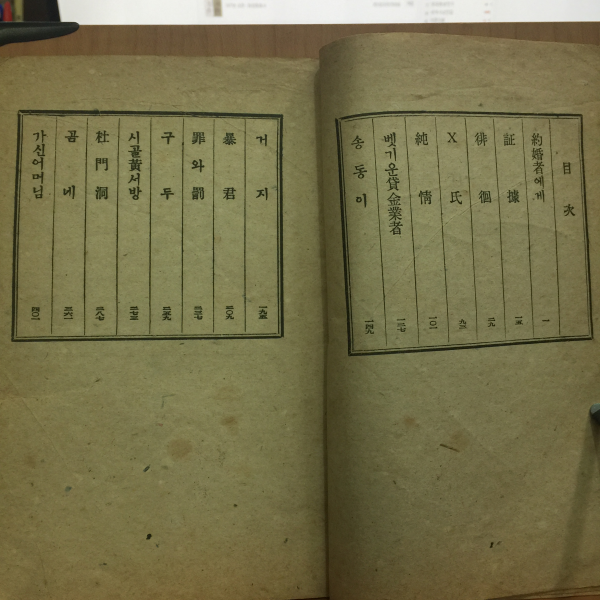 目次
約婚者에게 一
証據 一五
徘徊 二九
X氏
純情 一〇一
벳기운貸金業者
송동이 一四九
거지 一九五
暴君 二〇九
罪와罰
구두 二五九
시골黃서방 二七三
杜門洞 二八七
곰네
가신어머님 四〇一